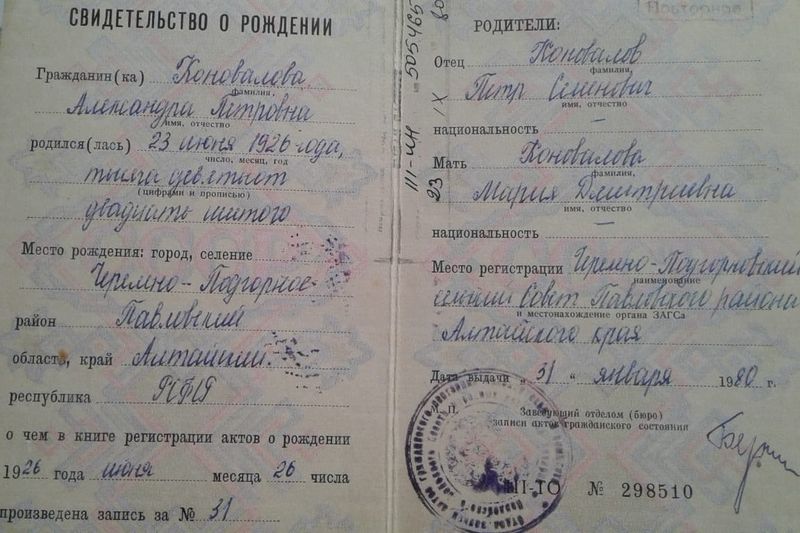 СВИДЕТЕЛЬСТВО О РОЖДЕНИИ
Гражданин(ка) Коновалова
фамилия,
Александра Петровна
имя, отчество
родился(лась) 23 июня 1926 года,
число, месяц, год
тысяча девятьсот
(цифрами и прописью)
двадцать шестого
Место рождения: город, селение
Черемно-Подгорное
район Павловский
область, край Алтайский
республика РСФСР
о чем в книге регистрации актов о рождении
1926 года июня месяца 26 числа
произведена запись за № 31
III-АН 505465
23 IX 80
Повторное
РОДИТЕЛИ:
Отец Коновалов
фамилия,
Петр Семенович
имя, отчество
национальность —
Мать Коновалова
фамилия,
Мария Дмитриевна
имя, отчество
национальность —
Место регистрации Черемно-Подгорновский
наименование
сельский Совет Павловского района
и местонахождение органа ЗАГСа
Алтайского края
Дата выдачи „ 31 “ января 1980 г.
М.П. Заведующий отделом (бюро)
записи актов гражданского состояния
III-ТО № 298510